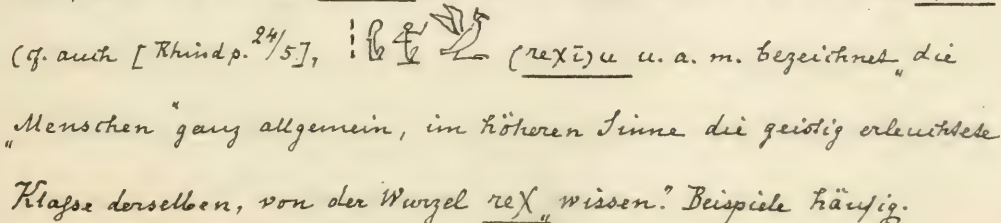 (cf. auch [Rhind p. 24/5], (reχī)u u. a. m. bezeichnet „die
„Menschen“ ganz allgemein, im höheren Sinne die geistig erleuchtete
Klasse derselben, von der Wurzel reχ „wissen“. Beispiele häufig.